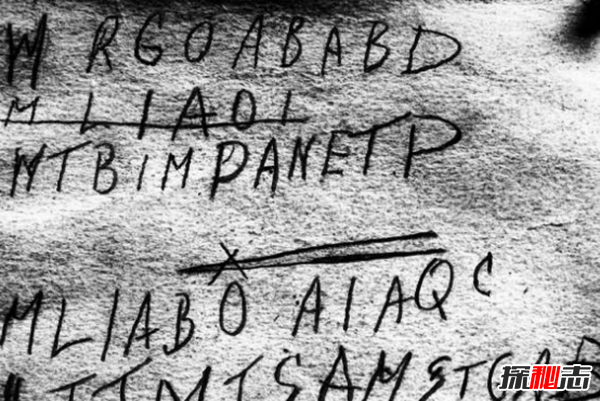 W RGOABABD
MLIAOI
WTBIMPANETP
X
MLIABO AIAQC
ITTMTSAMSTGAB
探秘志